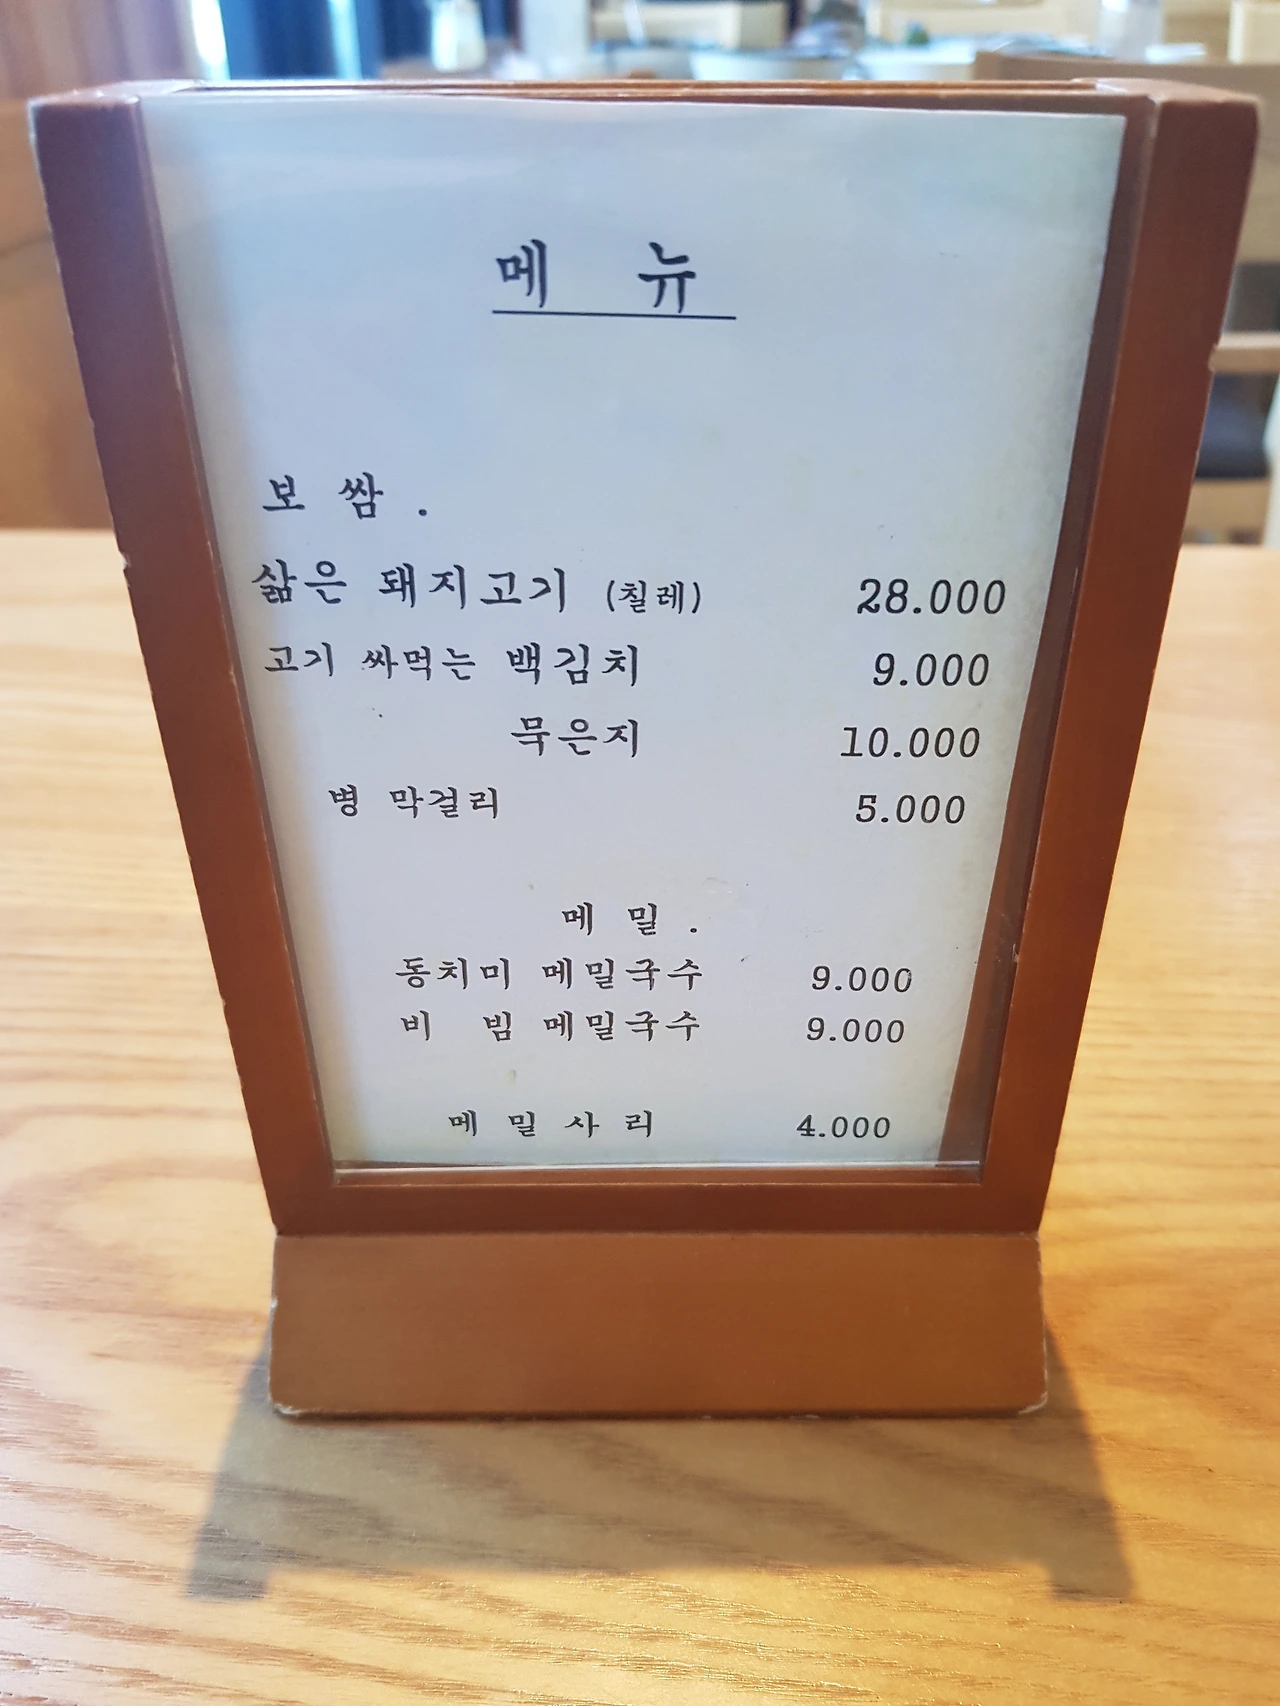 메 뉴
보 쌈 .
삶은 돼지고기 (칠레) 28.000
고기 싸먹는 백김치 9.000
묵은지 10.000
병 막걸리 5.000
메 밀 .
동치미 메밀국수 9.000
비 빔 메밀국수 9.000
메 밀 사 리 4.000